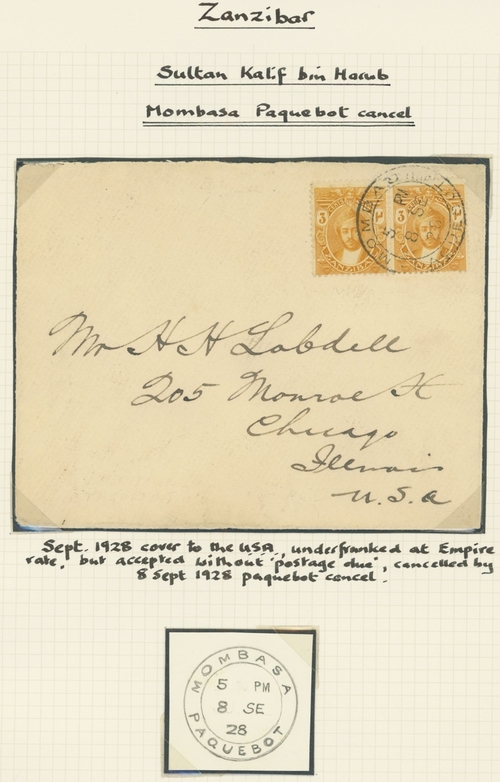 Zanzibar
Sultan Kalif bin Harub
Mombasa Paquebot cancel
3 3
ZANZIBAR
MOMBASA
5 PM
8 SE
Mr H H Lobdell
205 Monroe St
Chicago
Illinois
U.S.A
Sept. 1928 cover to the USA, underfranked at Empire
rate, but accepted without "postage due", cancelled by
8 Sept 1928 paquebot cancel.
MOMBASA
5 PM
8 SE
28
PAQUEBOT